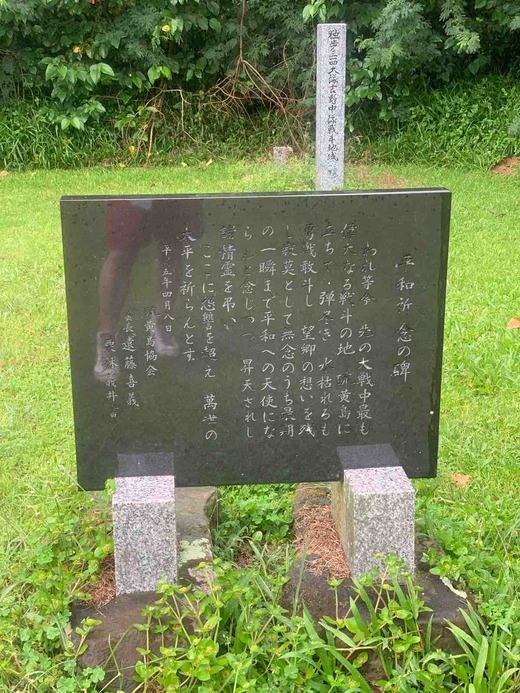 平和祈念の碑
われ等今 先の大戦中最も
偉大なる戦斗の地 硫黄島に
立ちて 弾尽き 水枯れるも
勇戦敢斗し 望郷の想いを残
し 寂莫として無念のうち最期
の一瞬まで平和への天使にな
らんと念じつつ 昇天されし
諸精霊を弔い
ここに恩讐を超え 萬世の
太平を祈らんとす
平成五年四月八日
硫黄島協会
会長 遠藤喜義
大隊 戦斗地域